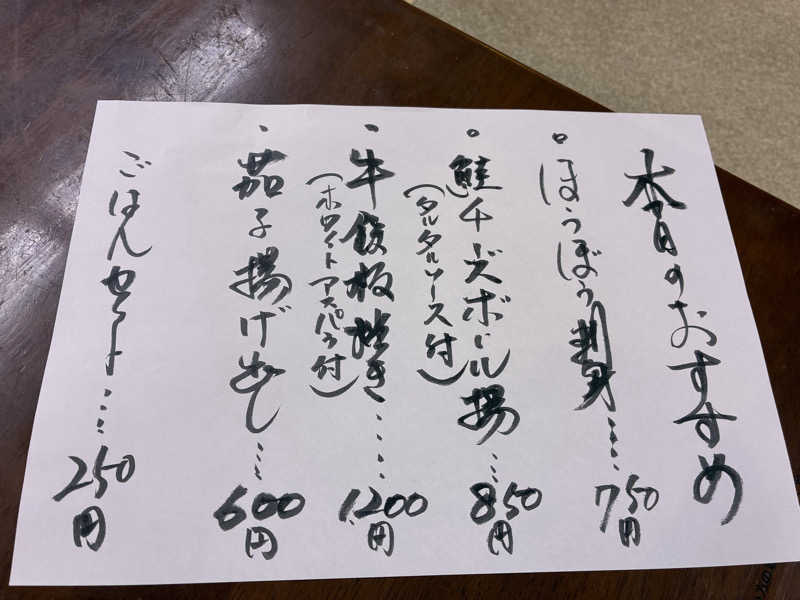 本日のおすすめ
ほうぼう刺身……750円
鮭チーズボール揚…850円
(タルタルソース付)
牛鉄板焼き……1,200円
(ホワイトアスパラ付)
茄子揚げ出し…600円
ごはんセット……250円